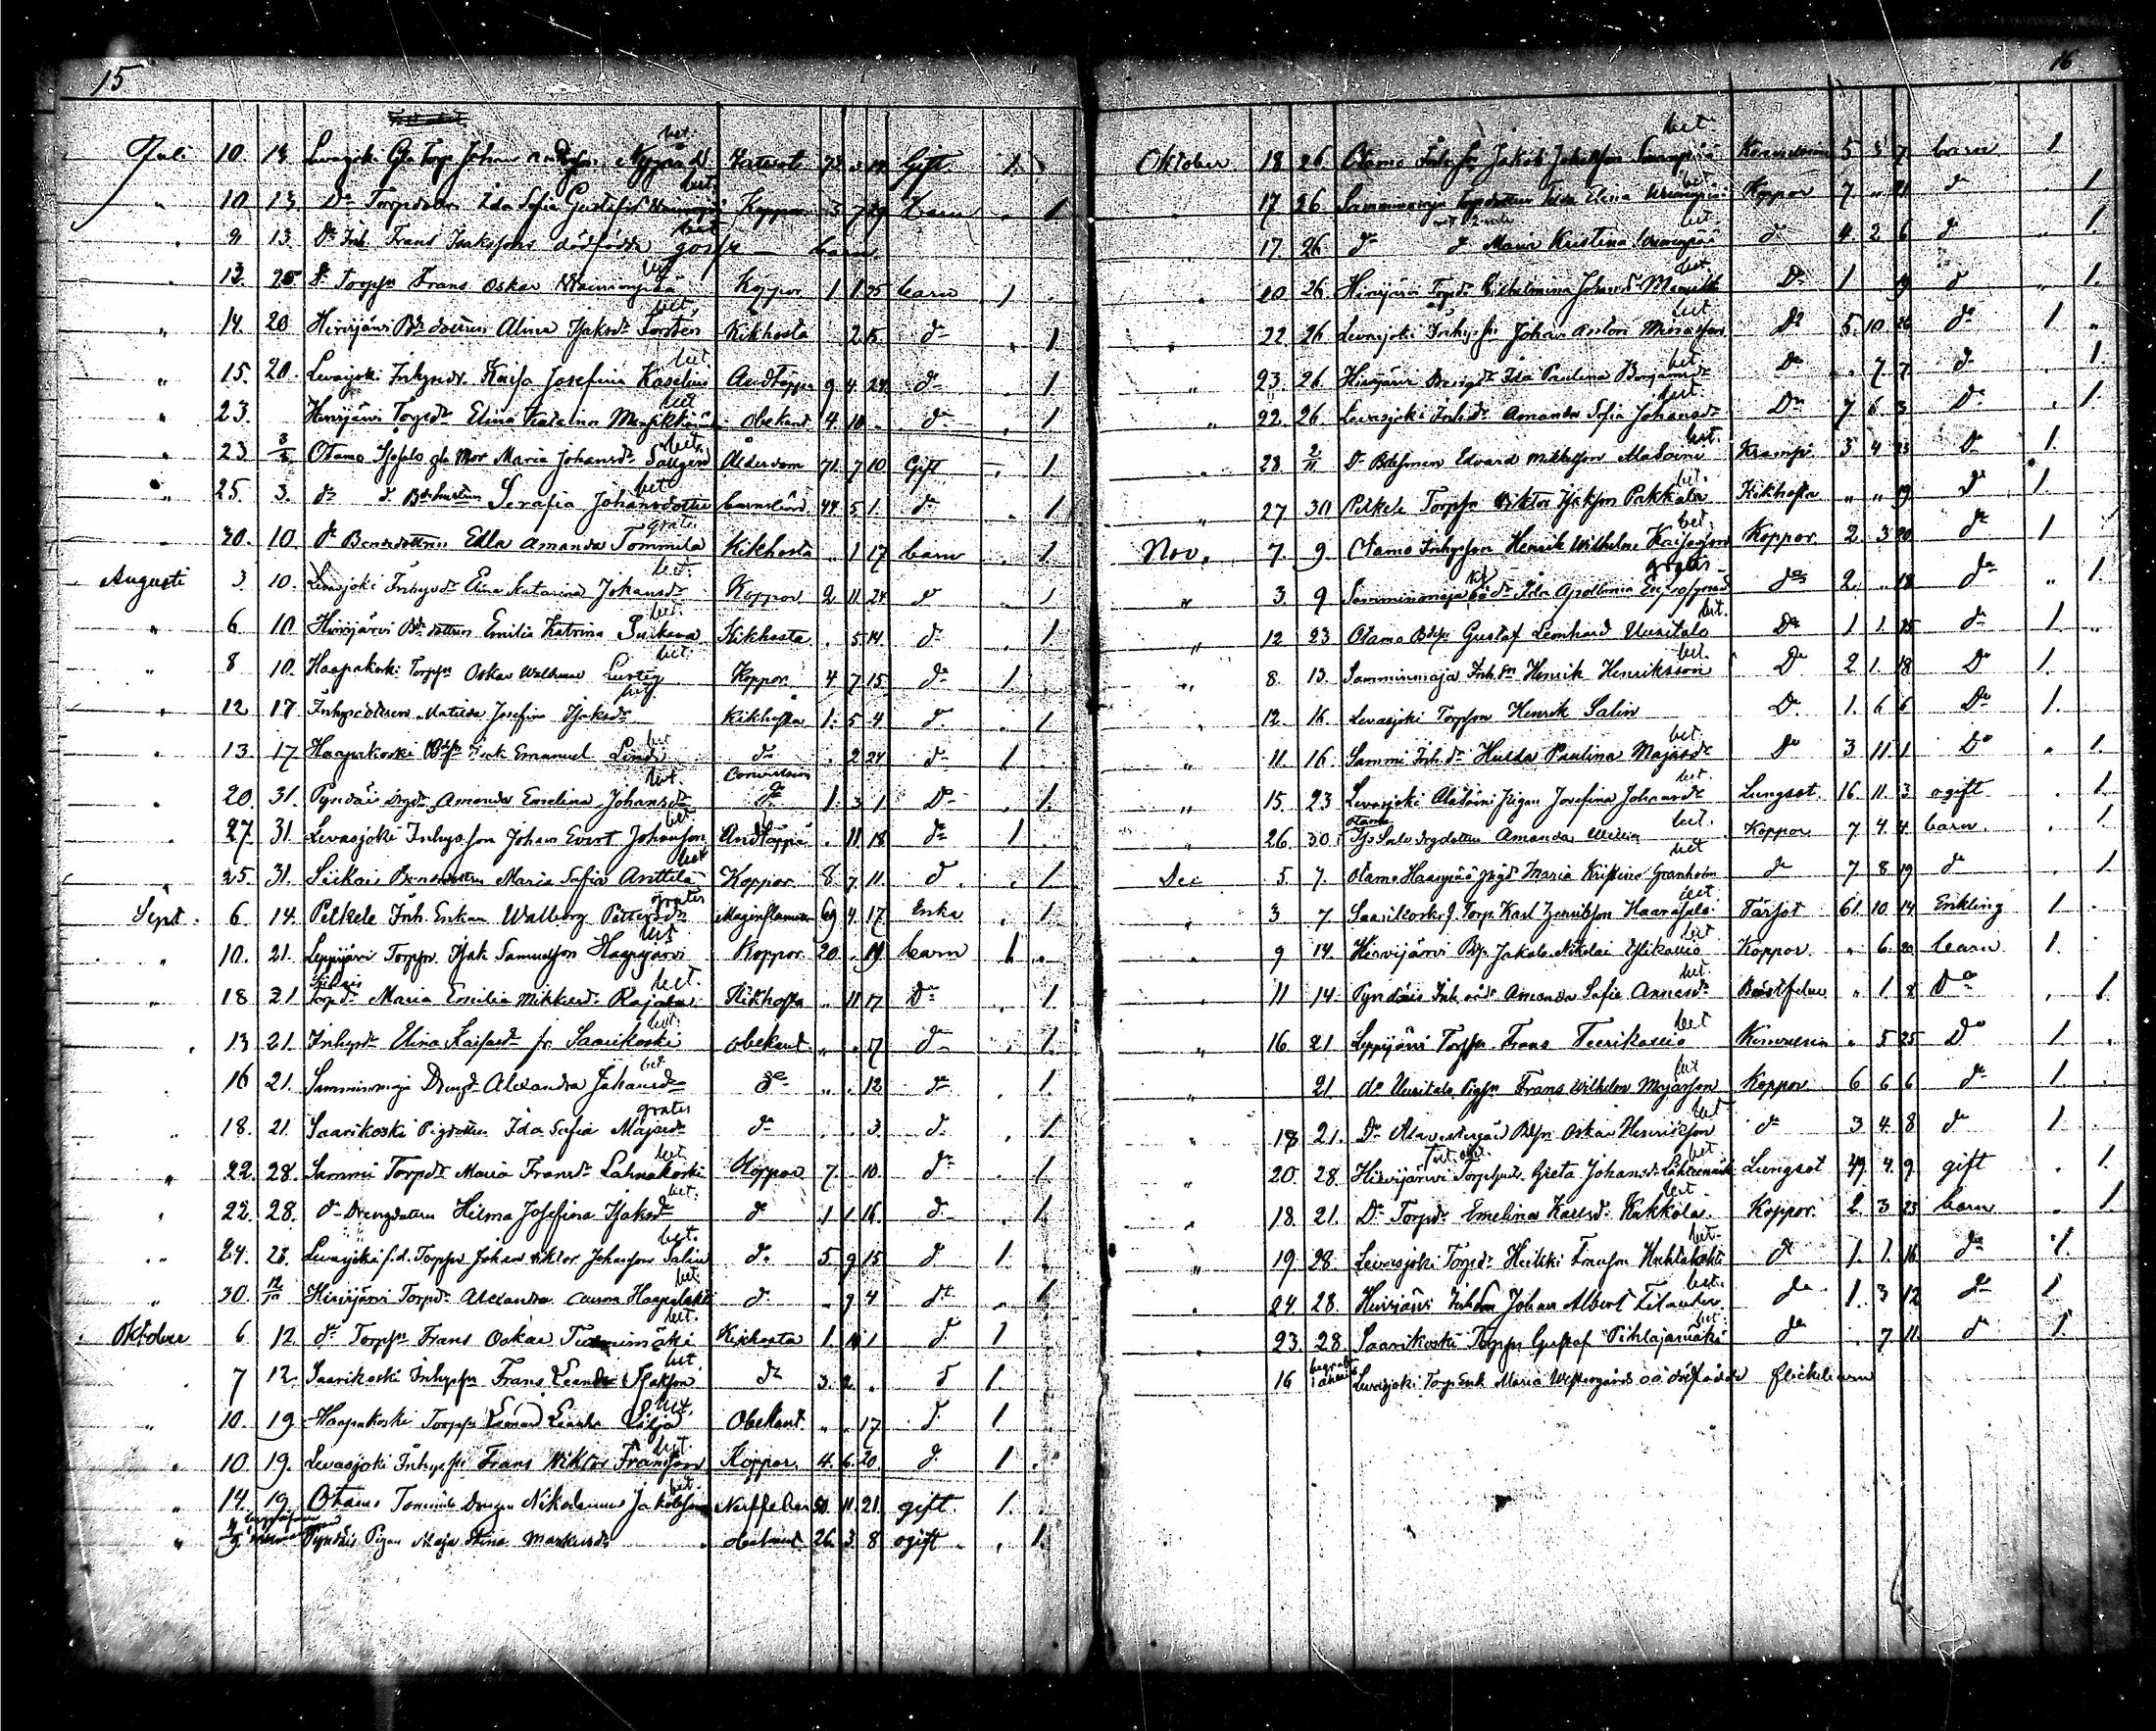 15
Juli 10. 13. Levasjoki Torp. Johan Nygård bet. 72 3 Gift 1.
" 10 13. Do Torpdottren Ida Sofia Gustafsd bet. Koppor 3 7 29 barn " 1
" 9 13. Do Inh. Frans Isakssons dödfödde gosse bet — barn
" 13. 20 do Torpsn Frans Oskar Wainionpää bet Koppor 1 1 25 barn 1
" 14. 20 Hirvijärvi Bdedottren Alina Isaksdr Forstén bet Kikhosta 2 15 do " 1
" 15. 20. Levasjoki Inhysdr Kaisa Josefina Kaselius bet Andtäppa 9 4 24 do " 1
" 23. Hirvijärvi Torpdr Elina Katarina bet obekant 4 10 . do " 1
" 23 3/8 Otamo Isosalo gla Mor Maria Johansdr Sallgren bet. Ålderdom 71. 7 10 Gift . 1
" 25. 3. do do Serafia Johansdotter bet barnsbörd 44 5 1. do . 1
. 30. 10. do Bondedottren Edla Amanda Tommila gratis Kikhosta . 1 17 barn . 1
Augusti 3. 10. Levasjoki Inhysdr Elina Katarina Johansdr bet. Koppor 2 11 24 do . 1
" 6 10 Hirvijärvi Bdedottren Emilia Katrina bet Kikhosta . 5 14 do . 1
" 8 10. Haapakoski Torpsn Oskar Waldemar Lustig bet. Koppor. 4 7 15. do 1.
" 12 17 Inhysedottren Matilda Josefina Isaksdr bet Kikhosta 1. 5 4. do . 1.
. 13. 17 Haapakoski Isak Emanuel Lind bet do . 2 24 do 1
. 20. 31. Pyndäis Drgdr Amanda Emelina Johansdr bet. Convulsion do 1. 3 1. Do . 1.
. 27. 31. Levasjoki Inhysson Johan Evert Johansson bet. Andtäppa . 11 18 do 1
. 25. 31. Siikais Maria Sofia Anttila bet Koppor 8. 7 11. do . . 1
Sept. 6 14. Pelkele Inh. Enkan Walborg Pettersdr gratis Maginflamma 69 4. 17 Enka . 1
" 10. 21. Leppijärvi Torpsn Isak Samuelsson Haapajärvi bet Koppor 20. . 19 barn 1
" 18 21 Siikais Torpdr Maria Emilia Mikkelsdr Rajala bet. Kikhosta . 11 17 Do . 1.
. 13 21. Inhysdr Elina Kaisasdr fr. Saarikoski bet. obekant " . 17 do . 1.
. 16 21. Samminmaja Drengdr Alexandra Johansdr bet do " . 12 do . 1.
" 18. 21. Saarikoski Pigdottren Ida Sofia Majasdr gratis do . . 3. do . 1.
" 22. 28. Sammi Torpdr Maria Fransdr Lahnakoski bet Koppor 7. . 10. do . 1
" 22. 28. do Drengdottren Hilma Josefina Isaksdr bet. do 1 1. 16. do . 1.
" 24. 28. Levasjoki f.d. Torpsn Johan Viktor Johansson Salin bet. do 5 9 15 do 1.
" 30. 12/10 Hirvijärvi Torpdr Alexandra Haapalahti bet. do . 9 4 do . 1
Oktober 6. 12. do Torpsn Frans Oskar Tuomimäki bet. Kikhosta 1. 10 1 do 1
. 7 12. Saarikoski Inhyssn Frans Leander Isaksson bet. do 3. 2. . do 1.
" 10. 19 Haapakoski Torpsn Leander Lilja bet. Obekant. " . 17 do 1.
" 10. 19. Levasjoki Inhyssn Frans Viktor Fransson bet. Koppor. 4. 6. 20. do. 1.
" 14. 19. Otamo Tommila Drengen Nikodemus Jakobsson bet. Nerffeber 50. 11. 21. gift 1.
" Pyndäis Pigan Maja Stina Markusdr obekant 26. 3. 8 ogift . 1.
16
Oktober 18 26. Otamo Inhyssn Jakob Johansson bet. Konvulsion 5 3 7 barn 1
. 17 26 Samminmaja Torpdottren Tilda Elina bet Koppor 7 " 21 do . 1.
. 17. 26. do do Maria Kristina bet do 4. 2. 6 do . 1
. 20 26 Hirvijärvi Torpdr Wilhelmina Johansdr bet. Do 1 19 do " 1.
. 22. 26 Levasjoki Inhyssn Johan Anton bet Do 5. 10 26 do 1 "
" 23. 26. Hirvijärvi Ida Paulina bet. Do . 7 7. do . 1.
" 22. 26. Levasjoki Inhdr Amanda Sofia Johansdr bet. Do 7. 6. 3 Do . 1.
. 28. 2/11 Do Bdesonen Edvard Mikkelsson Alatoini bet. Kramp. 3 4 23 Do 1.
" 27 30 Pelkele Torpsn Viktor Isaksson Pakkala bet. Kikhosta " " 19. do 1.
Nov. 7. 9. Otamo Inhysson Henrik Wilhelm Kaisasson bet. Koppor. 2. 3 20 do 1
" 3. 9 Samminmaja Ida Apollonia gratis do 2 . 18 do " 1.
" 12 23 Otamo Bdsn Gustaf Leonhard Uusitalo bet. Do 1 1. 25 do 1. "
" 8. 13. Samminmaja Inh.sn Henrik Henriksson bet. Do 2 1. 18 Do 1.
. 12. 16. Levasjoki Torpson Henrik Salin Do 1. 6 6 Do 1.
" 11. 16. Sammi Inh.dr Hulda Paulina Majasdr bet. Do 3 11 1 Do . 1.
" 15. 23 Levasjoki Alatoini Pigan Josefina Johansdr bet. Lungsot. 16. 11. 3 ogift . 1.
" 26. 30. Otamo Isosalo drgdottren Amanda bet. Koppor 7 4. 4 barn. . 1.
Dec 5. 7. Otamo Haanpää pigd Maria Kristina Granholm bet do 7 8 19 do . 1.
" 3 7 Saarikoski f. Torp. Karl Henriksson Haarasalo bet Tärsot 61. 10. 14 Enkling 1.
" 9 14. Hirvijärvi Bdsn Jakob Nikolai Ylikallio bet Koppor. " 6. 20 barn 1.
" 11 14. Pyndäis Inh. Amanda Sofia Annasdr bet. Bröstfeber " 1 8 Do . 1.
" 16. 21 Leppijärvi Torpsn Frans Teerikallio bet Konvulsion . 5 25 Do 1.
" 21. do Uusitalo Pigsn Frans Wilhelm Majasson bet Koppor 6 6 6 do 1.
" 18 21. Do Bdsn Oskar Henriksson bet do 3 4. 8 do 1
" 20. 28. Hirvijärvi Greta Johansdr bet Lungsot 49. 4. 9 gift . 1.
" 18. 21. Do Torpdr Emelina Karlsdr Kakkola bet. Koppor. 2. 3 23 barn " 1
" 19. 28. Levasjoki Torpsn Heikki Fransson Huhtalahti bet. do 1. 1. 16 do 1.
. 24. 28. Hirvijärvi Inhsn Johan Albert bet. do 1. 3 12 do 1
. 23. 28. Saarikoski Torpsn Gustaf Pihlajamäki bet. do . 7 11. do 1.
16 Levasjoki Torp Enk Maria Westergårds oä dödfödde flickebarn